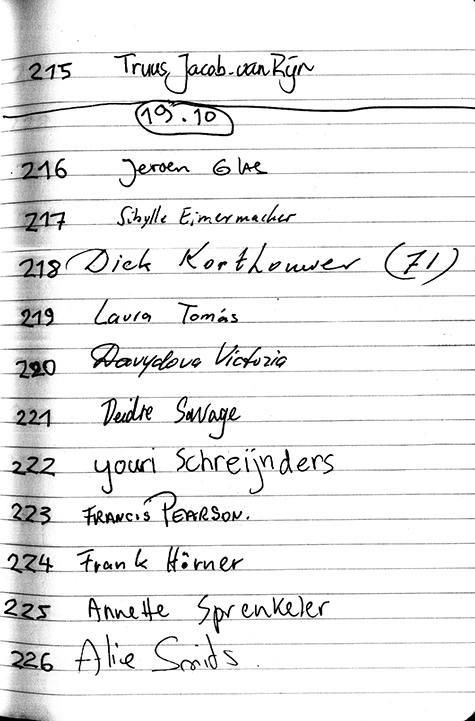 215 Truus Jacob-van Rijn
19.10
216 Jeroen Glas
217 Sibylle Eimermacher
218 Dick Korthouwer (71)
219 Laura Tomás
220 Davydova Victoria
221 Deidre Savage
222 youri Schreijnders
223 FRANCIS PEARSON.
224 Frank Hörner
225 Annette Sprenkeler
226 Alie Smids.